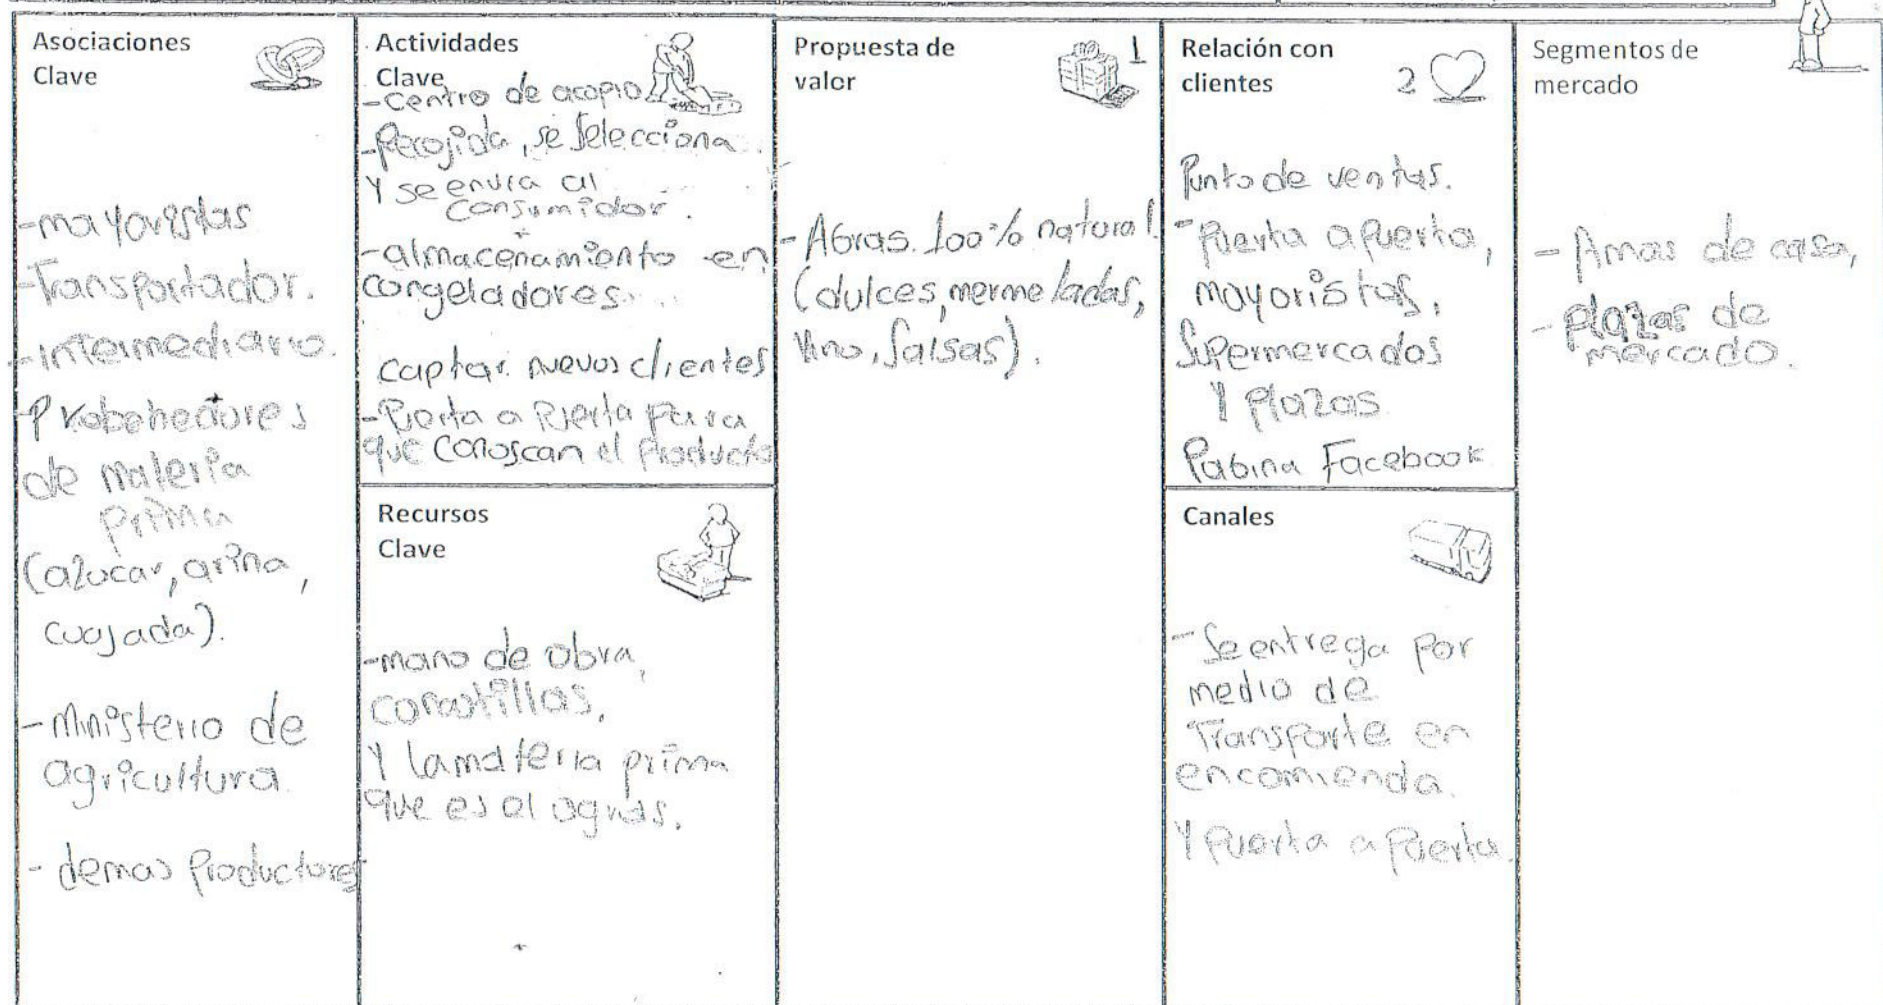 Asociaciones
Clave
-mayoristas
-Transportador.
-intermediario.
-Probehedores
de materia
prima
(azucar, arina,
cuajada).
-Ministerio de
agricultura
- demas productores
Actividades
Clave
-Centro de acopio
-Recojida, se selecciona
Y se envia al
consumidor.
-almacenamiento en
congeladores
captar nuevos clientes
-Puerta a Puerta para
que conoscan el producto
Recursos
Clave
-mano de obra,
canastillas,
Y la materia prima
que es el agras.
Propuesta de
valor
1
-Agras. 100% natural.
(dulces, mermeladas,
Vino, salsas).
Relación con
clientes
2
Punto de ventas.
-Puerta a Puerta,
mayoristas,
Supermercados
Y Plazas
Pagina Facebook
Canales
-Se entrega por
medio de
Transporte en
encomienda.
Y Puerta a Puerta.
Segmentos de
mercado
- Amas de casa,
- plazas de
mercado.